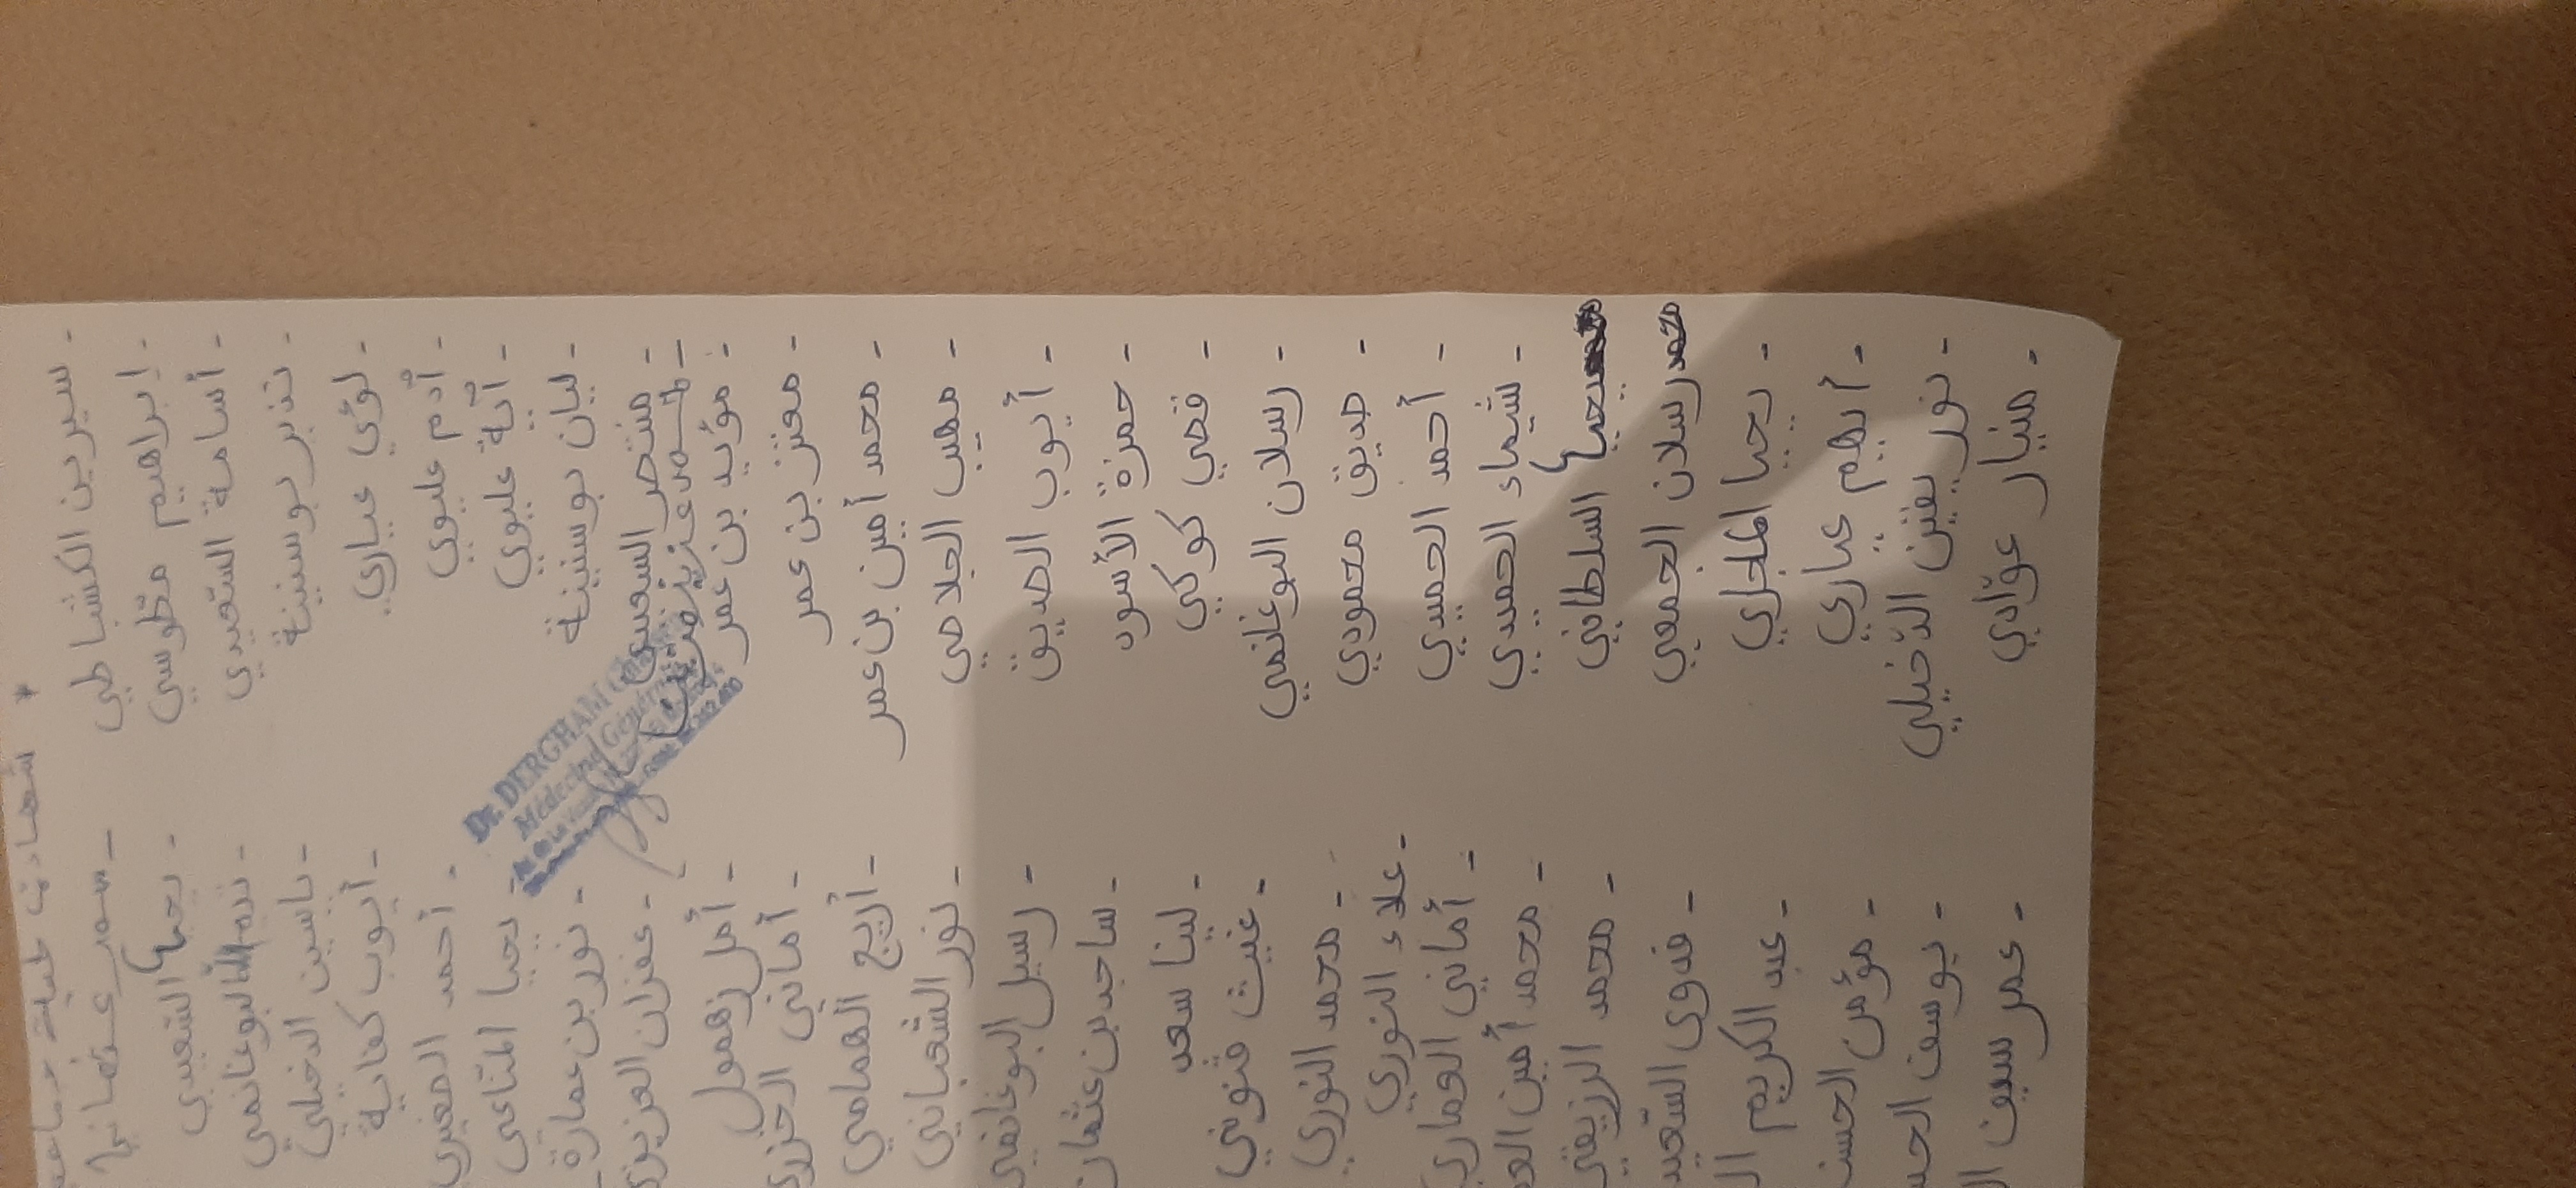 شهادات طبية جماعية *
- سيرين الكشاطي
- إبراهيم مطوسي
- أسامة السّعيدي
- تنير بوسنينة
- لؤي عياري
- أدم عليوي
- أية عليوي
- ليان بوسنينة
- منتصر السعيدي
- مؤيد بن عمر
- معتز بن عمر
- محمد أمين بن عمر
- مهيب الجلاصي
- أيوب الصديق
- حمزة الأسود
- قصي كوكي
- رسلان البوغانمي
- صديق محمودي
- أحمد الحميدي
- شيماء الحميدي
يحيى السلطاني
محمد رسلان الجمعي
- يحيا
- أيهم عياري
- نور يقين الدّخيلي
- منيار عوّادي
- سمر عثماني
- يحيى السّعيدي
البوغانمي
- ياسين الدخيلي
- أيوب كعابية
- أحمد
- يحيا المناعي
- نور بن عمارة
- غفران العزيزي
- أمل زهمول
- أماني
- أريج الهمامي
- نور الشعباني
- رسيل البوغانمي
- ساجد بن عثمان
- لينا سعد
- غيث فتوني
- محمد النوري
- علاء النوري
- أماني العماري
- محمد أمين
- محمد الرزيقي
- فدوى
- عبد الكريم
- مؤمن
- يوسف
- عمر سيف
Dr. DERGHAM
Médecine Générale